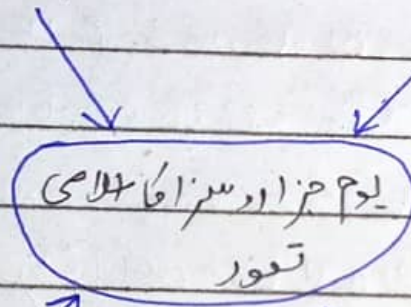 یوم جزا اور سزا کا اسلامی
تصور